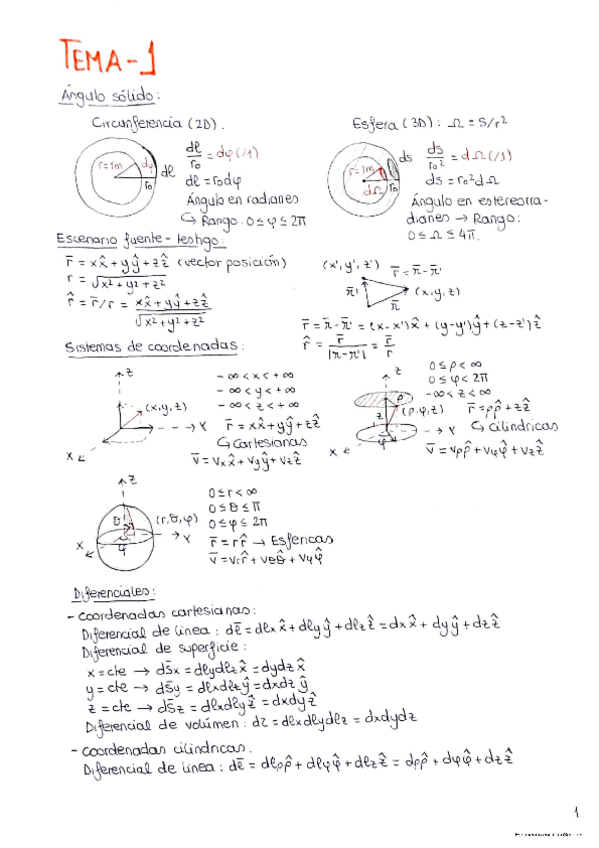 TEMA-1
Ángulo sólido:
Circunferencia (2D).
Esfera (3D): Ω = S/r²
r=1m dφ dl r₀
dl/r₀ = dφ(/1)
dl = r₀dφ
Ángulo en radianes
↳ Rango. 0 ≤ φ ≤ 2π
r=1m dΩ r₀ ds
ds/r₀² = dΩ(/1)
ds = r₀²dΩ
Ángulo en estereorra-
dianes → Rango:
0 ≤ Ω ≤ 4π.
Escenario fuente - testigo:
r̄ = xx̂ + yŷ + zẑ (vector posición)
r = √x² + y² + z²
r̂ = r̄/r = xx̂ + yŷ + zẑ / √x² + y² + z²
(x', y', z') r̄ = π̄ - π̄'
π̄' (x, y, z)
π̄
r̄ = π̄ - π̄' = (x-x')x̂ + (y-y')ŷ + (z-z')ẑ
r̂ = r̄/|π̄-π̄'| = r̄/r
Sistemas de coordenadas:
z (x,y,z) Y X
-∞ < x < +∞
-∞ < y < +∞
-∞ < z < +∞
r̄ = xx̂ + yŷ + zẑ
↳ Cartesianas
v̄ = vₓx̂ + vyŷ + vzẑ
z ρ z (ρ,φ,z) φ Y X
0 ≤ ρ < ∞
0 ≤ φ < 2π
-∞ < z < ∞
r̄ = ρρ̂ + zẑ
↳ Cilíndricas
v̄ = vρρ̂ + vφφ̂ + vzẑ
z θ (r,θ,φ) φ Y X
0 ≤ r < ∞
0 ≤ θ ≤ π
0 ≤ φ ≤ 2π
r̄ = rr̂ → Esféricas
v̄ = vrr̂ + vθθ̂ + vφφ̂
Diferenciales:
- Coordenadas cartesianas:
Diferencial de línea: dl̄ = dlx x̂ + dly ŷ + dlz ẑ = dx x̂ + dy ŷ + dz ẑ
Diferencial de superficie:
x = cte → ds̄x = dlydlz x̂ = dydz x̂
y = cte → ds̄y = dlxdlz ŷ = dxdz ŷ
z = cte → ds̄z = dlxdly ẑ = dxdy ẑ
Diferencial de volúmen: dτ = dlxdlydlz = dxdydz
- Coordenadas cilíndricas.
Diferencial de línea: dl̄ = dlρ ρ̂ + dlφ φ̂ + dlz ẑ = dρ ρ̂ + dφ φ̂ + dz ẑ
1